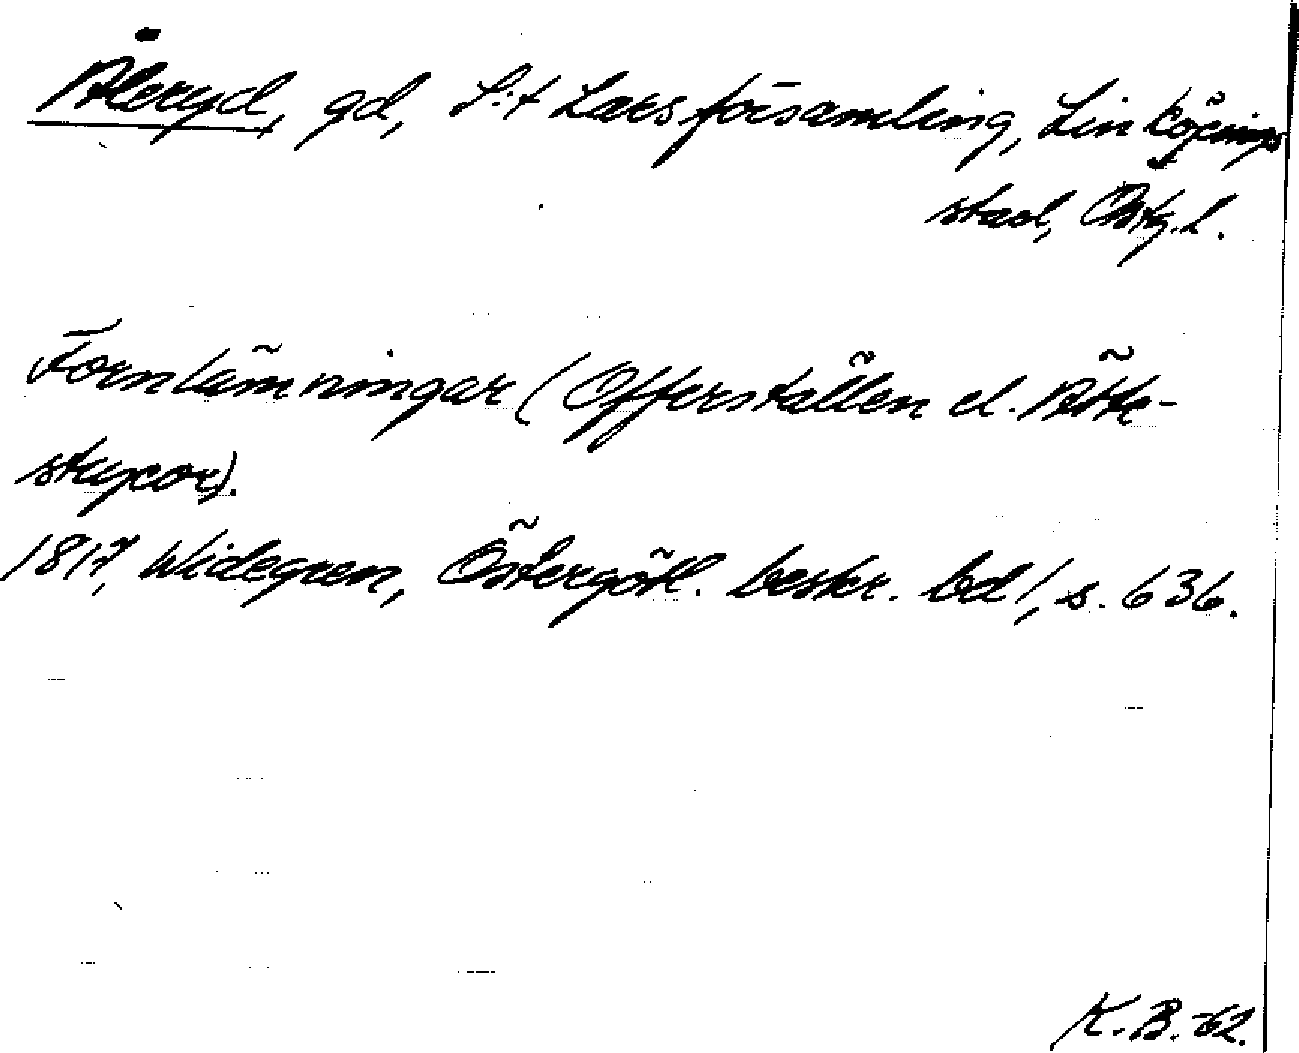 Åleryd, gd, S:t Lars församling, Linköpings
stad, Östg.l.
Fornlämningar (Offerställen el. Ätte-
stupor).
1817, Widegren, Östergötl. beskr. bd 1, s. 636.
K.B.-62.